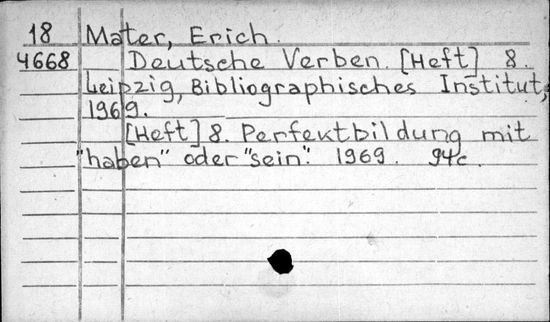 18 Mater, Erich
4668 Deutsche Verben. [Heft] 8.
Leipzig, Bibliographisches Institut,
1969.
[Heft] 8. Perfektbildung mit
"haben" oder "sein". 1969. 94c.